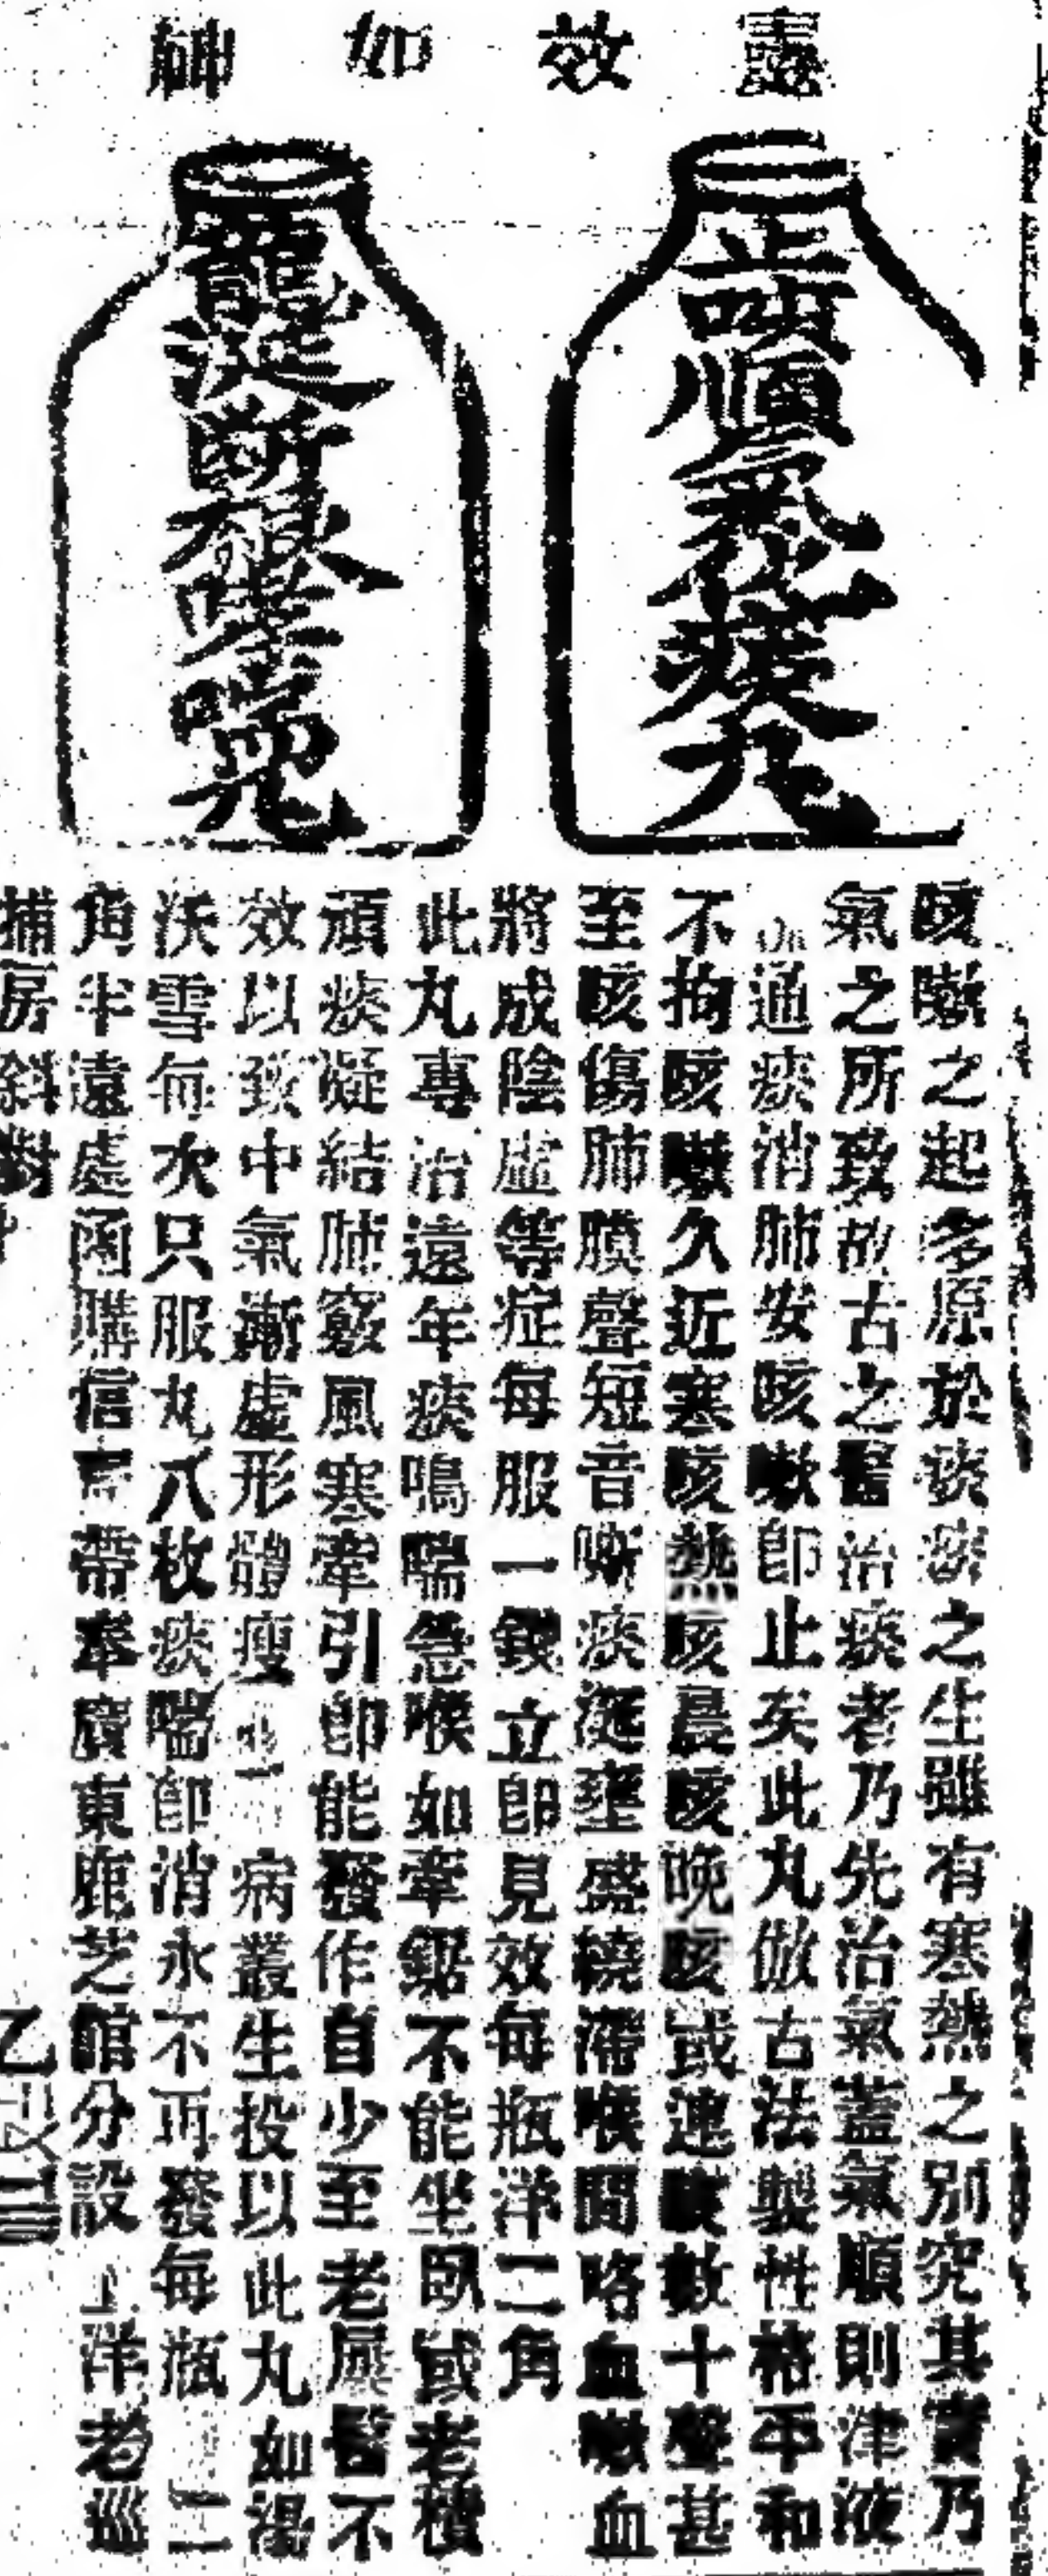 靈效如神
止咳順氣化痰丸
龍涎斷根哮喘丸
咳嗽之起多原於痰痰之生雖有寒熱之別究其實乃
氣之所致故古之醫治痰者乃先治氣蓋氣順則津液
通痰消肺安咳嗽卽止矣此丸倣古法製性格平和
不拘咳嗽久近寒咳熱咳晨咳晚咳或連咳數十聲甚
至咳傷肺膜聲短音嘶痰涎壅盛繞滯喉間咯血嗽血
將成陰虛等症每服一錢立卽見效每瓶洋二角
此丸專治遠年痰鳴喘急喉如牽鋸不能坐臥或老積
頑痰凝結肺竅風寒牽引卽能發作自少至老屢醫不
效以致中氣漸虛形體瘦 病叢生投以此丸如湯
沃雪每次只服丸八枚痰喘卽消永不再發每瓶二
角半遠處函購信 帶奉廣東鹿芝館分設 洋老巡
捕房斜對